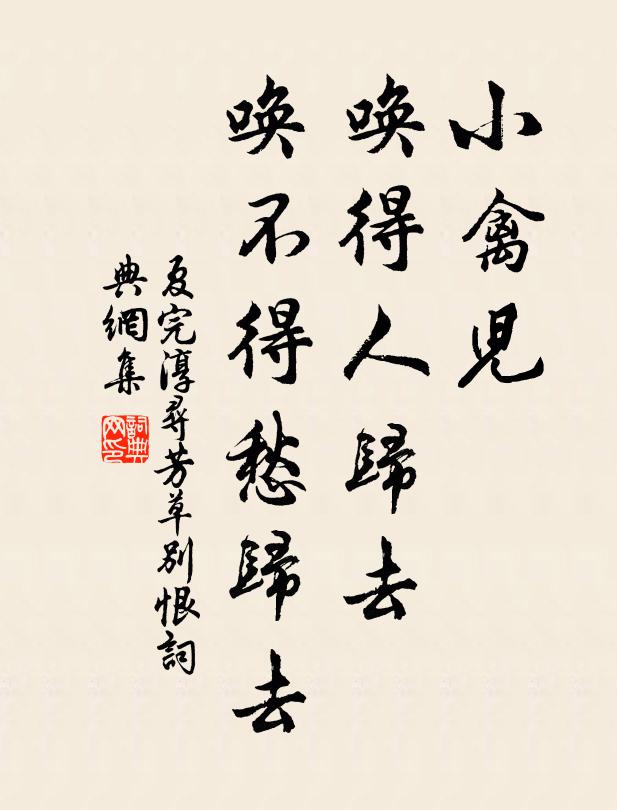 小禽兒
喚得人歸去
喚不得愁歸去
夏完淳尋芳草別恨詞
典網集
詞典
网印